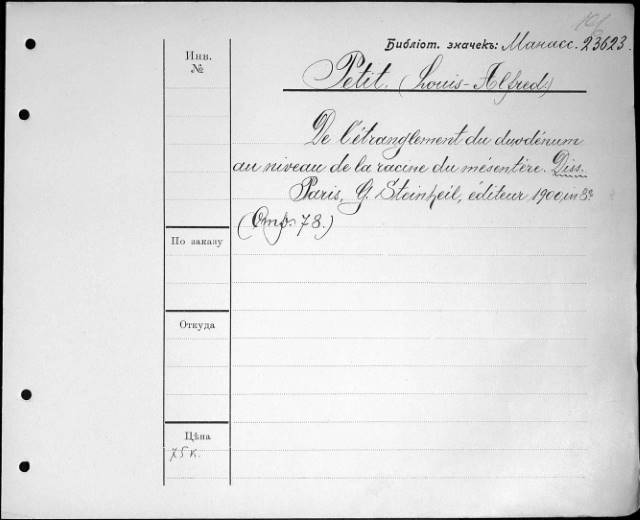 Библіот. значекъ: Манасс. 23623.
Инв.
№
Petit. (Louis-Alfred.)
De l'étranglement du duodénum
au niveau de la racine du mésentère. Diss.
Paris, G. Steinheil, éditeur, 1900, in 8º
(Стр. 78.)
По заказу
Откуда
Цѣна
75 к.